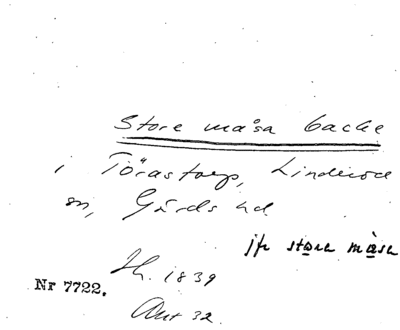 Store måsa backe
i Törastorp, Linderöd
sn, Gärds hd
jfr store måsa
Sk. 1839
Nr 7722.
Ant 32.